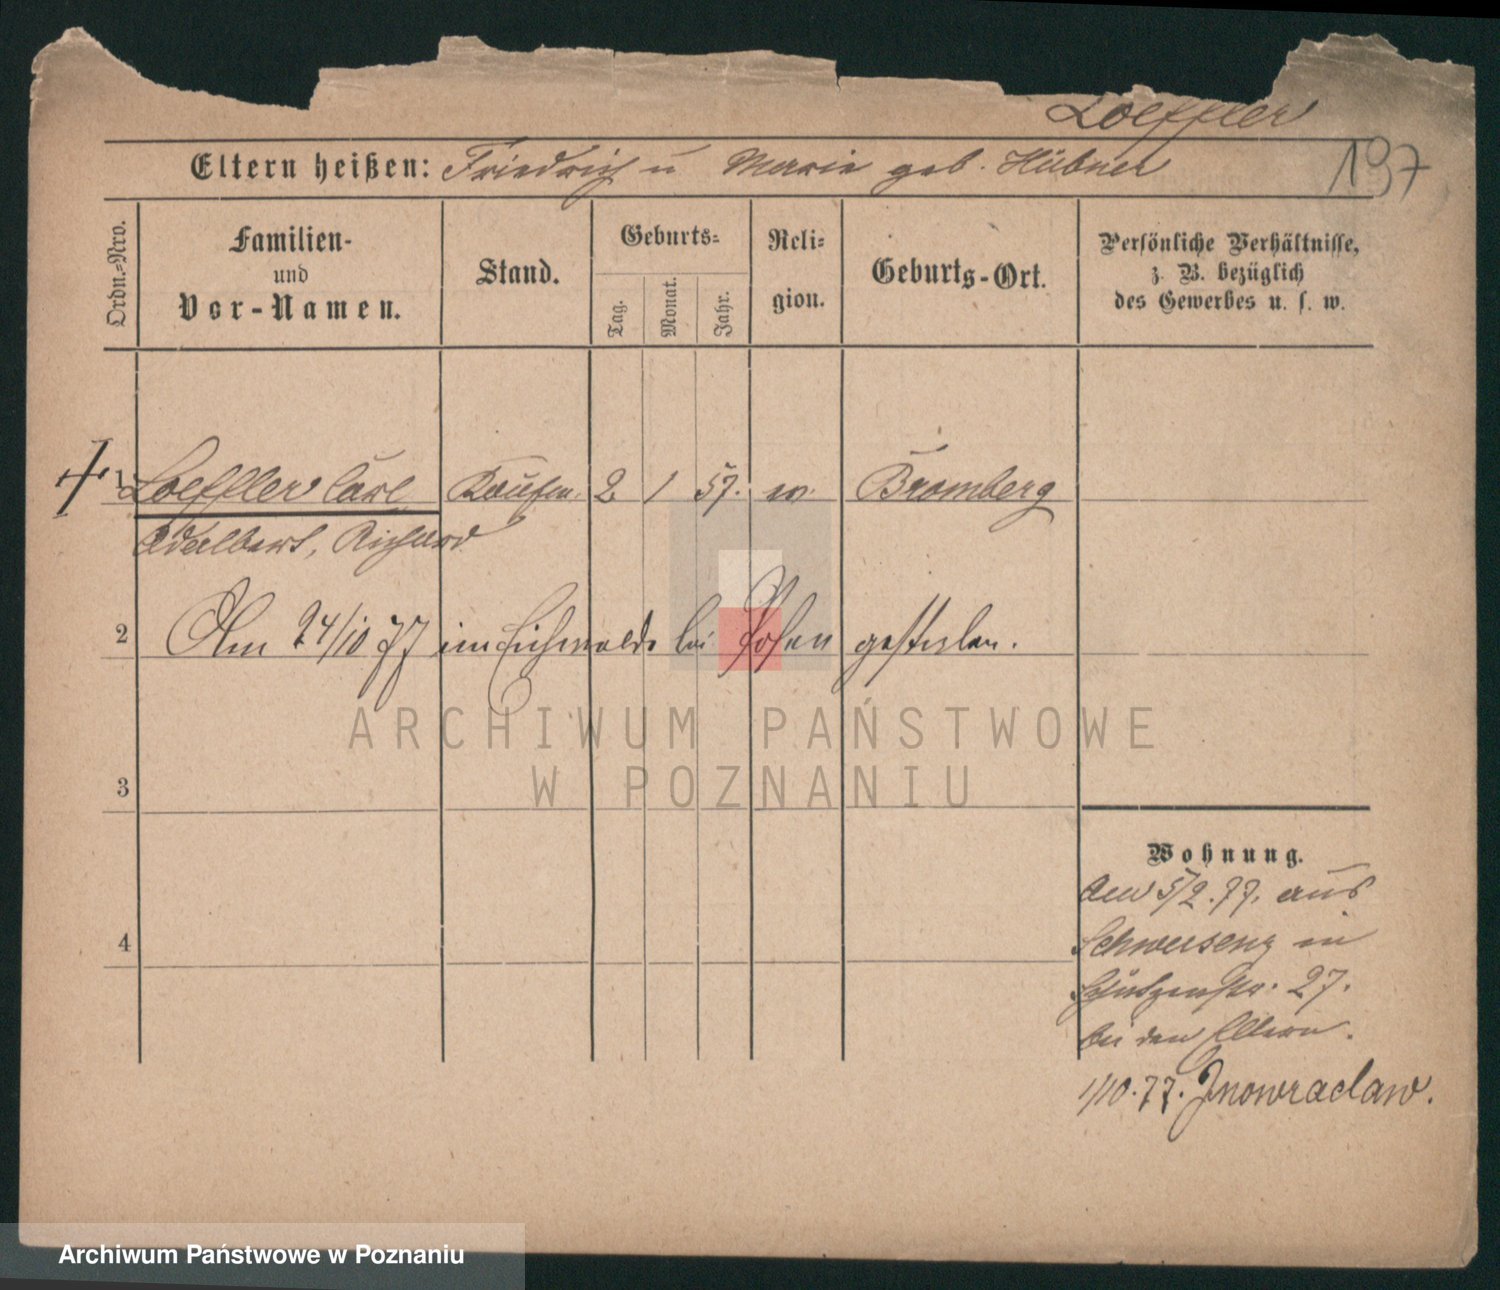 Loeffler
Eltern heißen: Friedrich u Marie geb. Hübner
197
Ordn.-Nro.
Familien-
und
Vor-Namen.
Stand.
Geburts-
Tag.
Monat.
Jahr.
Reli-
gion.
Geburts-Ort.
Persönliche Verhältnisse,
z. B. bezüglich
des Gewerbes u. s. w.
1 Loeffler Carl Kaufm. 2. 1 57. ev. Bromberg
Adalbert, Richard
2 Am 24/10 77 im Eichwalde bei Posen gestorben.
ARCHIWUM PAŃSTWOWE
W POZNANIU
3
Wohnung.
Am 5/2. 77. aus
4
Schwersenz in
Schützenstr. 27.
bei den Eltern.
1/10. 77. Inowraclaw.
Archiwum Państwowe w Poznaniu